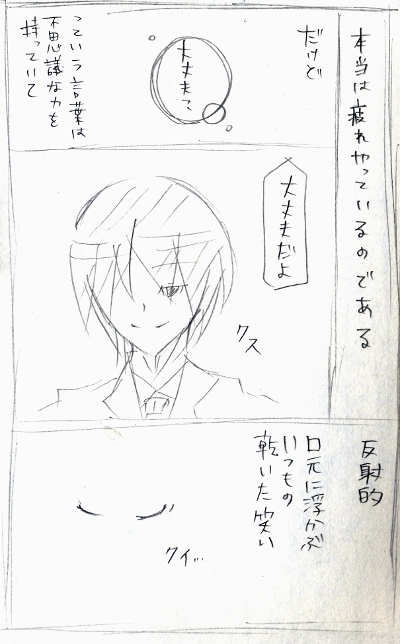 本当は疲れやっているのである
だけど
大丈夫
っていう言葉は
不思議な力を
持っていて
大丈夫だよ
クス
反射的
口元に浮かぶ
いつもの
乾いた笑い
クイ…